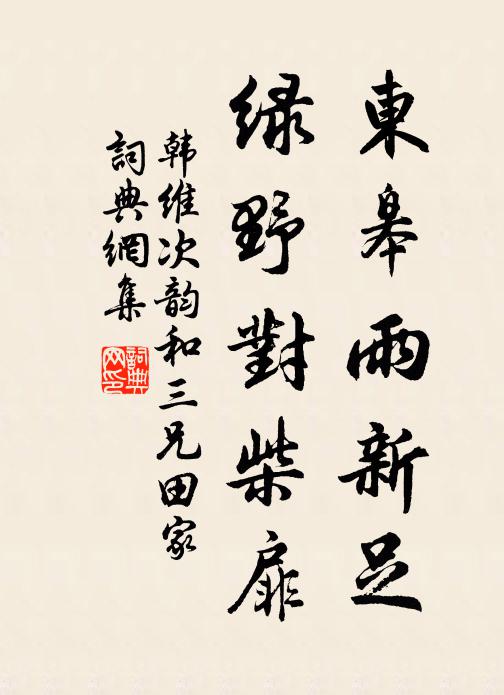 東皋雨新足
緑野對柴扉
韩維次韵和三兄田家
詞典網集
詞典网印